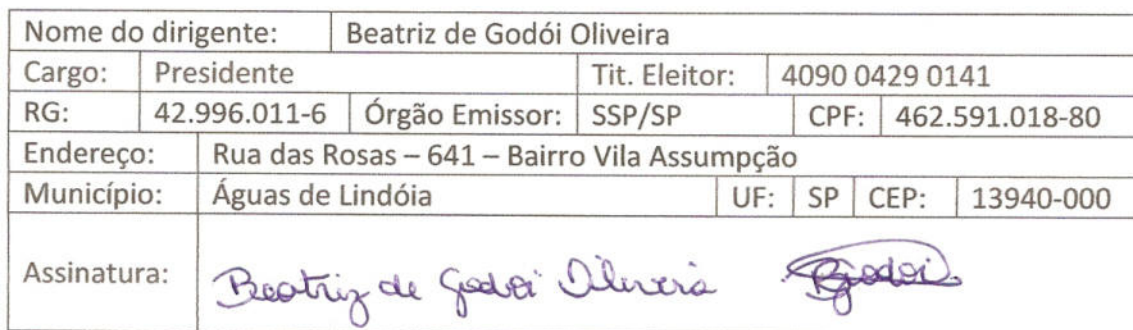 Nome do dirigente: Beatriz de Godói Oliveira
Cargo: Presidente Tit. Eleitor: 4090 0429 0141
RG: 42.996.011-6 Órgão Emissor: SSP/SP CPF: 462.591.018-80
Endereço: Rua das Rosas – 641 – Bairro Vila Assumpção
Município: Águas de Lindóia UF: SP CEP: 13940-000
Assinatura: Beatriz de Godoi Oliveira BGodoi